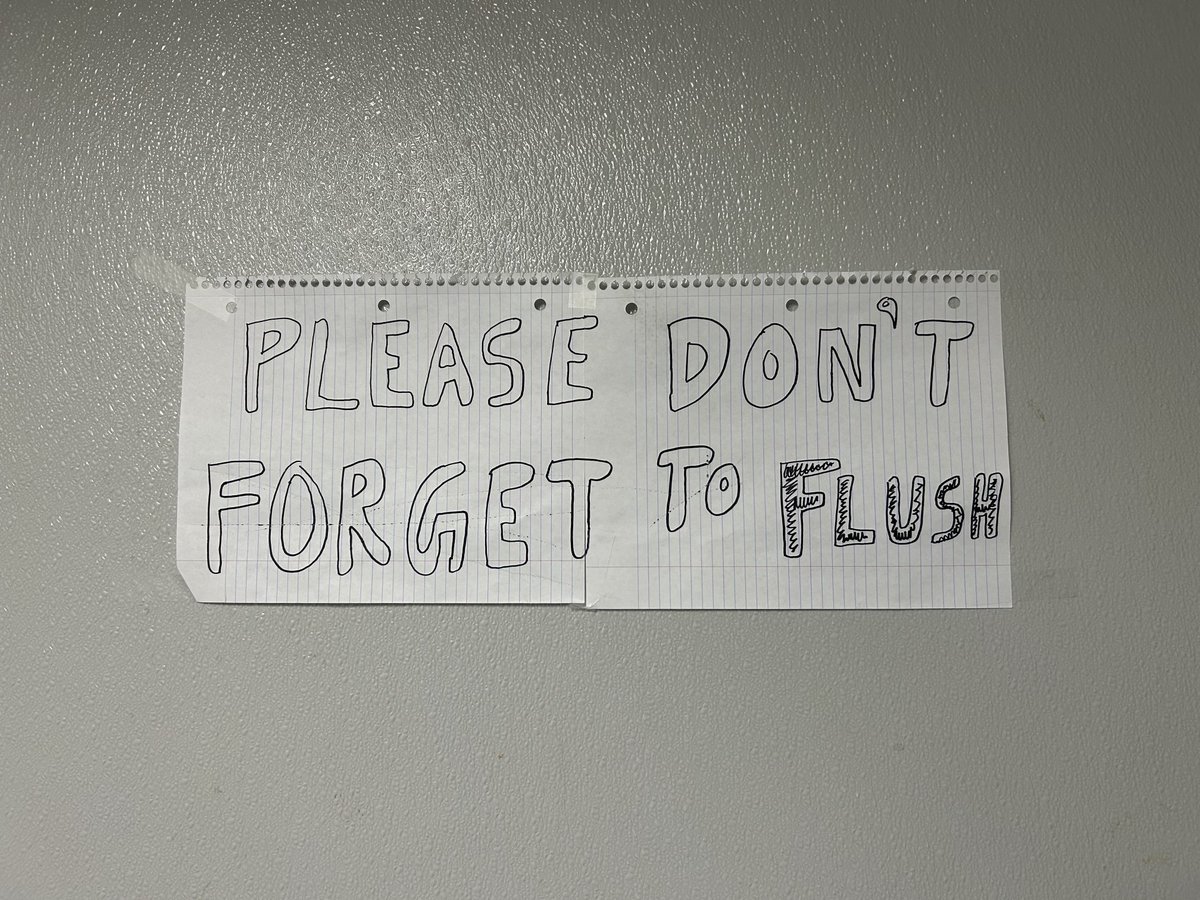 PLEASE DON'T
FORGET TO FLUSH